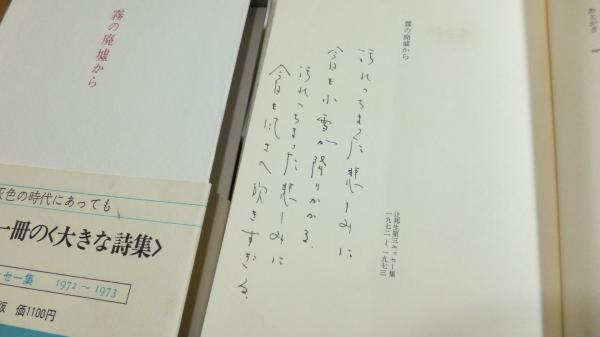 あとがき
霧の廃墟から
辻邦生第三エッセー集
一九七二―一九七三
汚れっちまった悲しみに
今日も小雪が降りかかる。
汚れっちまった悲しみに
今日も風さへ吹きすぎる。
霧の廃墟から
灰色の時代にあっても
一冊の〈大きな詩集〉
ッセー集 1972〜1973
版 価1100円